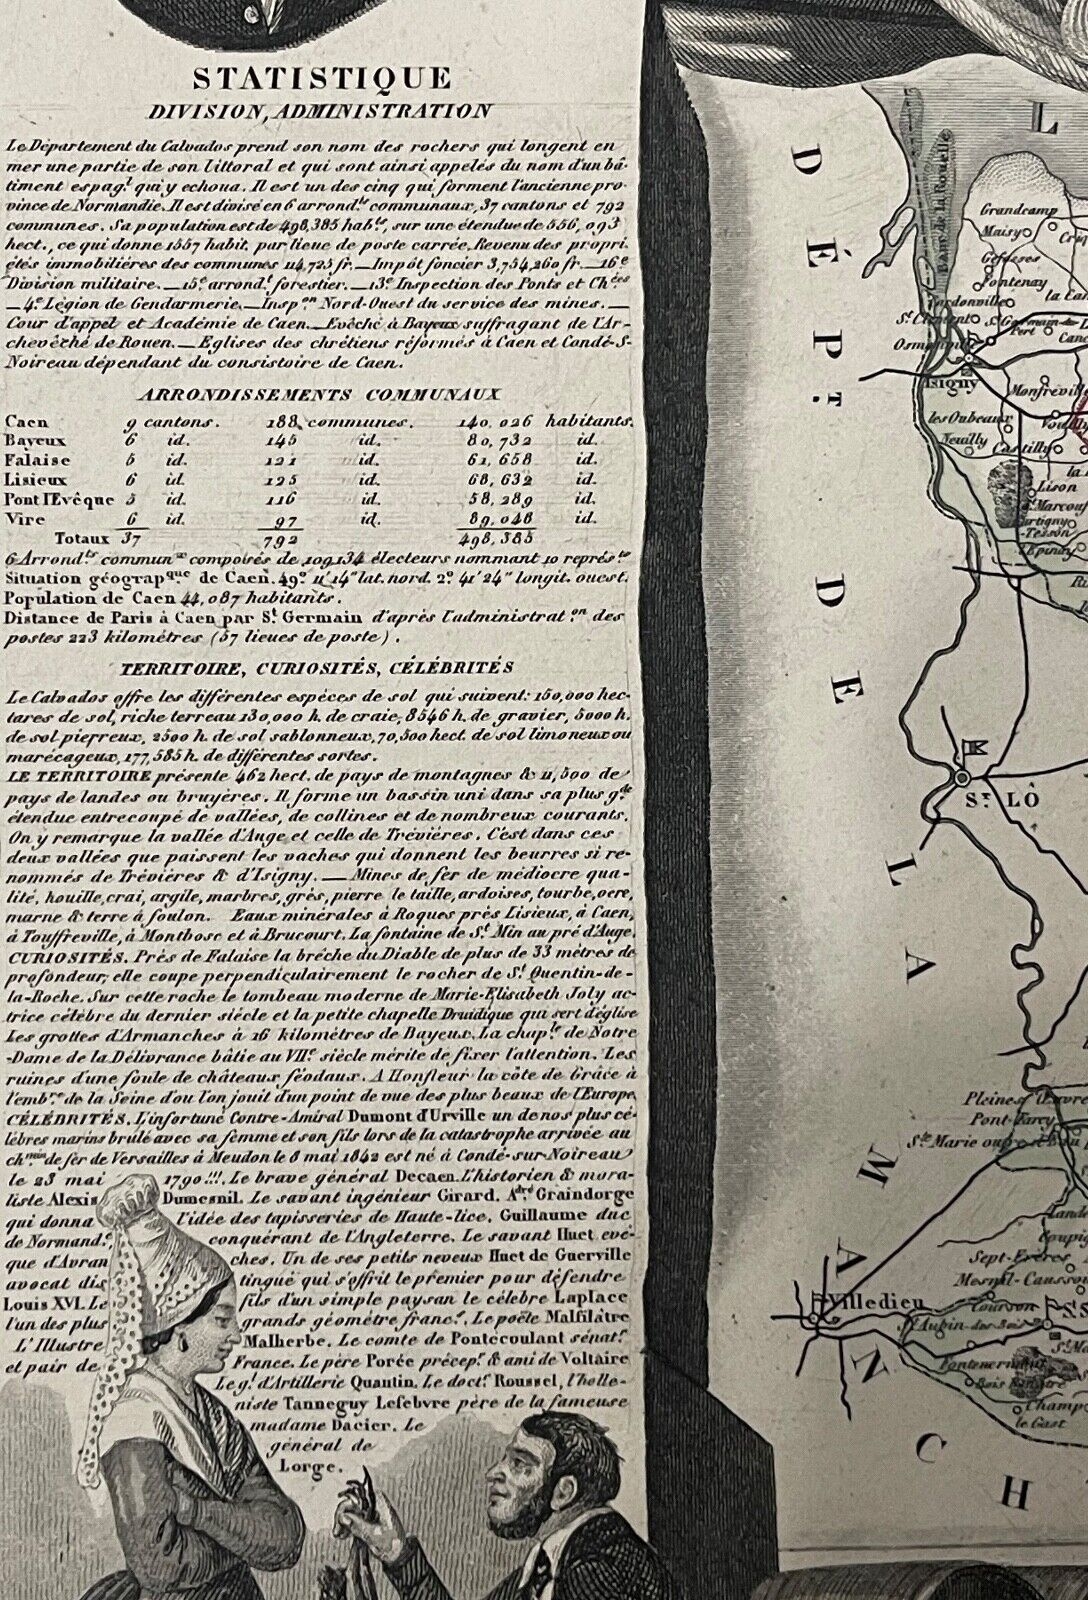 STATISTIQUE
DIVISION, ADMINISTRATION
Le Département du Calvados prend son nom des rochers qui longent en
mer une partie de son littoral et qui sont ainsi appelés du nom d'un bâ-
timent espag.l qui y echoua. Il est un des cinq qui forment l'ancienne pro-
vince de Normandie. Il est divisé en 6 arrond.ts communaux, 37 cantons et 792
communes. Sa population est de 498,385 hab.ts, sur une étendue de 556,093
hect., ce qui donne 1557 habit. par lieue de poste carrée. Revenu des propri-
étés immobilières des communes 114,725 fr. — Impôt foncier 3,754,260 fr. — 16.e
Division militaire. — 15.e arrond.t forestier. — 13.e Inspection des Ponts et Ch.ées
— 4.e Légion de Gendarmerie. — Insp.on Nord-Ouest du service des mines. —
Cour d'appel et Académie de Caen. — Evêché à Bayeux suffragant de l'Ar-
chevêché de Rouen. — Eglises des chrétiens réformés à Caen et Condé-S-
Noireau dépendant du consistoire de Caen.
ARRONDISSEMENTS COMMUNAUX
Caen 9 cantons. 188 communes. 140,026 habitants.
Bayeux 6 id. 145 id. 80,732 id.
Falaise 5 id. 121 id. 61,658 id.
Lisieux 6 id. 125 id. 68,632 id.
Pont l'Evêque 5 id. 116 id. 58,289 id.
Vire 6 id. 97 id. 89,048 id.
Totaux 37 792 498,385
6 Arrond.ts commun.x composés de 109,134 électeurs nommant 10 représ.ts
Situation géograp.que de Caen. 49.o 11' 14" lat. nord. 2.o 41' 24" longit. ouest.
Population de Caen 44,087 habitants.
Distance de Paris à Caen par S.t Germain d'après l'administrat.on des
postes 223 kilomètres (57 lieues de poste).
TERRITOIRE, CURIOSITÉS, CÉLÉBRITÉS
Le Calvados offre les différentes espèces de sol qui suivent: 150,000 hec-
tares de sol, riche terreau 130,000 h. de craie, 8546 h. de gravier, 5000 h.
de sol pierreux, 2500 h. de sol sablonneux, 70,500 hect. de sol limoneux ou
marécageux, 177,585 h. de différentes sortes.
LE TERRITOIRE présente 462 hect. de pays de montagnes & 11,500 de
pays de landes ou bruyères. Il forme un bassin uni dans sa plus g.de
étendue entrecoupé de vallées, de collines et de nombreux courants.
On y remarque la vallée d'Auge et celle de Trévières. C'est dans ces
deux vallées que paissent les vaches qui donnent les beurres si re-
nommés de Trévières & d'Isigny. — Mines de fer de médiocre qua-
lité, houille, crai, argile, marbres, grès, pierre le taille, ardoises, tourbe, ocre,
marne & terre à foulon. Eaux minérales à Roques près Lisieux, à Caen,
à Touffreville, à Montbosc et à Brucourt. La fontaine de S.t Min au pré d'Auge.
CURIOSITÉS. Près de Falaise la brêche du Diable de plus de 33 mètres de
profondeur; elle coupe perpendiculairement le rocher de S.t Quentin-de-
la-Roche. Sur cette roche le tombeau moderne de Marie-Elisabeth Joly ac-
trice célèbre du dernier siécle et la petite chapelle Druidique qui sert d'église
Les grottes d'Armanches à 26 kilomètres de Bayeux. La chap.le de Notre
-Dame de la Délivrance bâtie au VII.e siècle mérite de fixer l'attention. Les
ruines d'une foule de châteaux féodaux. A Honfleur la côte de Grâce à
l'emb.re de la Seine d'ou l'on jouit d'un point de vue des plus beaux de l'Europe
CÉLÉBRITÉS. L'infortuné Contre-Amiral Dumont d'Urville un de nos plus cé-
lèbres marins brulé avec sa femme et son fils lors de la catastrophe arrivée au
ch.min de fer de Versailles à Meudon le 8 mai 1842 est né à Condé-sur-Noireau
le 23 mai 1790!!!. Le brave général Decaen. L'historien & mora-
liste Alexis Dumesnil. Le savant ingénieur Girard. A.dré Graindorge
qui donna l'idée des tapisseries de Haute-lice. Guillaume duc
de Normand.e, conquérant de l'Angleterre. Le savant Huet evê-
que d'Avran ches. Un de ses petits neveux Huet de Guerville
avocat dis tingué qui s'offrit le premier pour défendre
Louis XVI. Le fils d'un simple paysan le célèbre Laplace
l'un des plus grands géomètre franc.s. Le poëte Malfilâtre
L'Illustre Malherbe. Le comte de Pontécoulant sénat.r
et pair de France. Le père Porée précep.r & ami de Voltaire
Le g.l d'Artillerie Quantin. Le doct.r Roussel, l'helle-
niste Tanneguy Lefebvre père de la fameuse
madame Dacier. Le
général de
Lorge.
L
DÉP.T DE LA MANCH
Banc de la Rouelle
Grandcamp
Maisy
Gefosses
Fontenay
Cardonville
la Ca
S.t Clément
S.t Germain-
Pert
Osmanville
Isigny
Monfréville
les Oubeaux
Vouilly
Neuilly
Castilly
Lison
S.t Marcouf
Cartigny-
Tesson
l'Epinay
S.T LÔ
Pleines Œuvre
Pont-Farcy
S.te Marie
Lande
Coupig
Sept-Frères
Mesnil-Caussoi
Courson
Villedieu
S.t Aubin-des-Bois
Fontenermont
Champ
le Gast